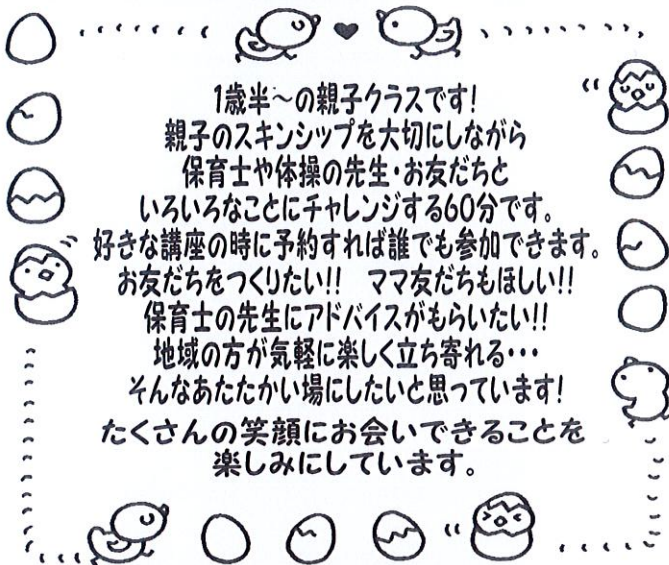 1歳半～の親子クラスです!
親子のスキンシップを大切にしながら
保育士や体操の先生・お友だちと
いろいろなことにチャレンジする60分です。
好きな講座の時に予約すれば誰でも参加できます。
お友だちをつくりたい!! ママ友だちもほしい!!
保育士の先生にアドバイスがもらいたい!!
地域の方が気軽に楽しく立ち寄れる・・・
そんなあたたかい場にしたいと思っています!
たくさんの笑顔にお会いできることを
楽しみにしています。